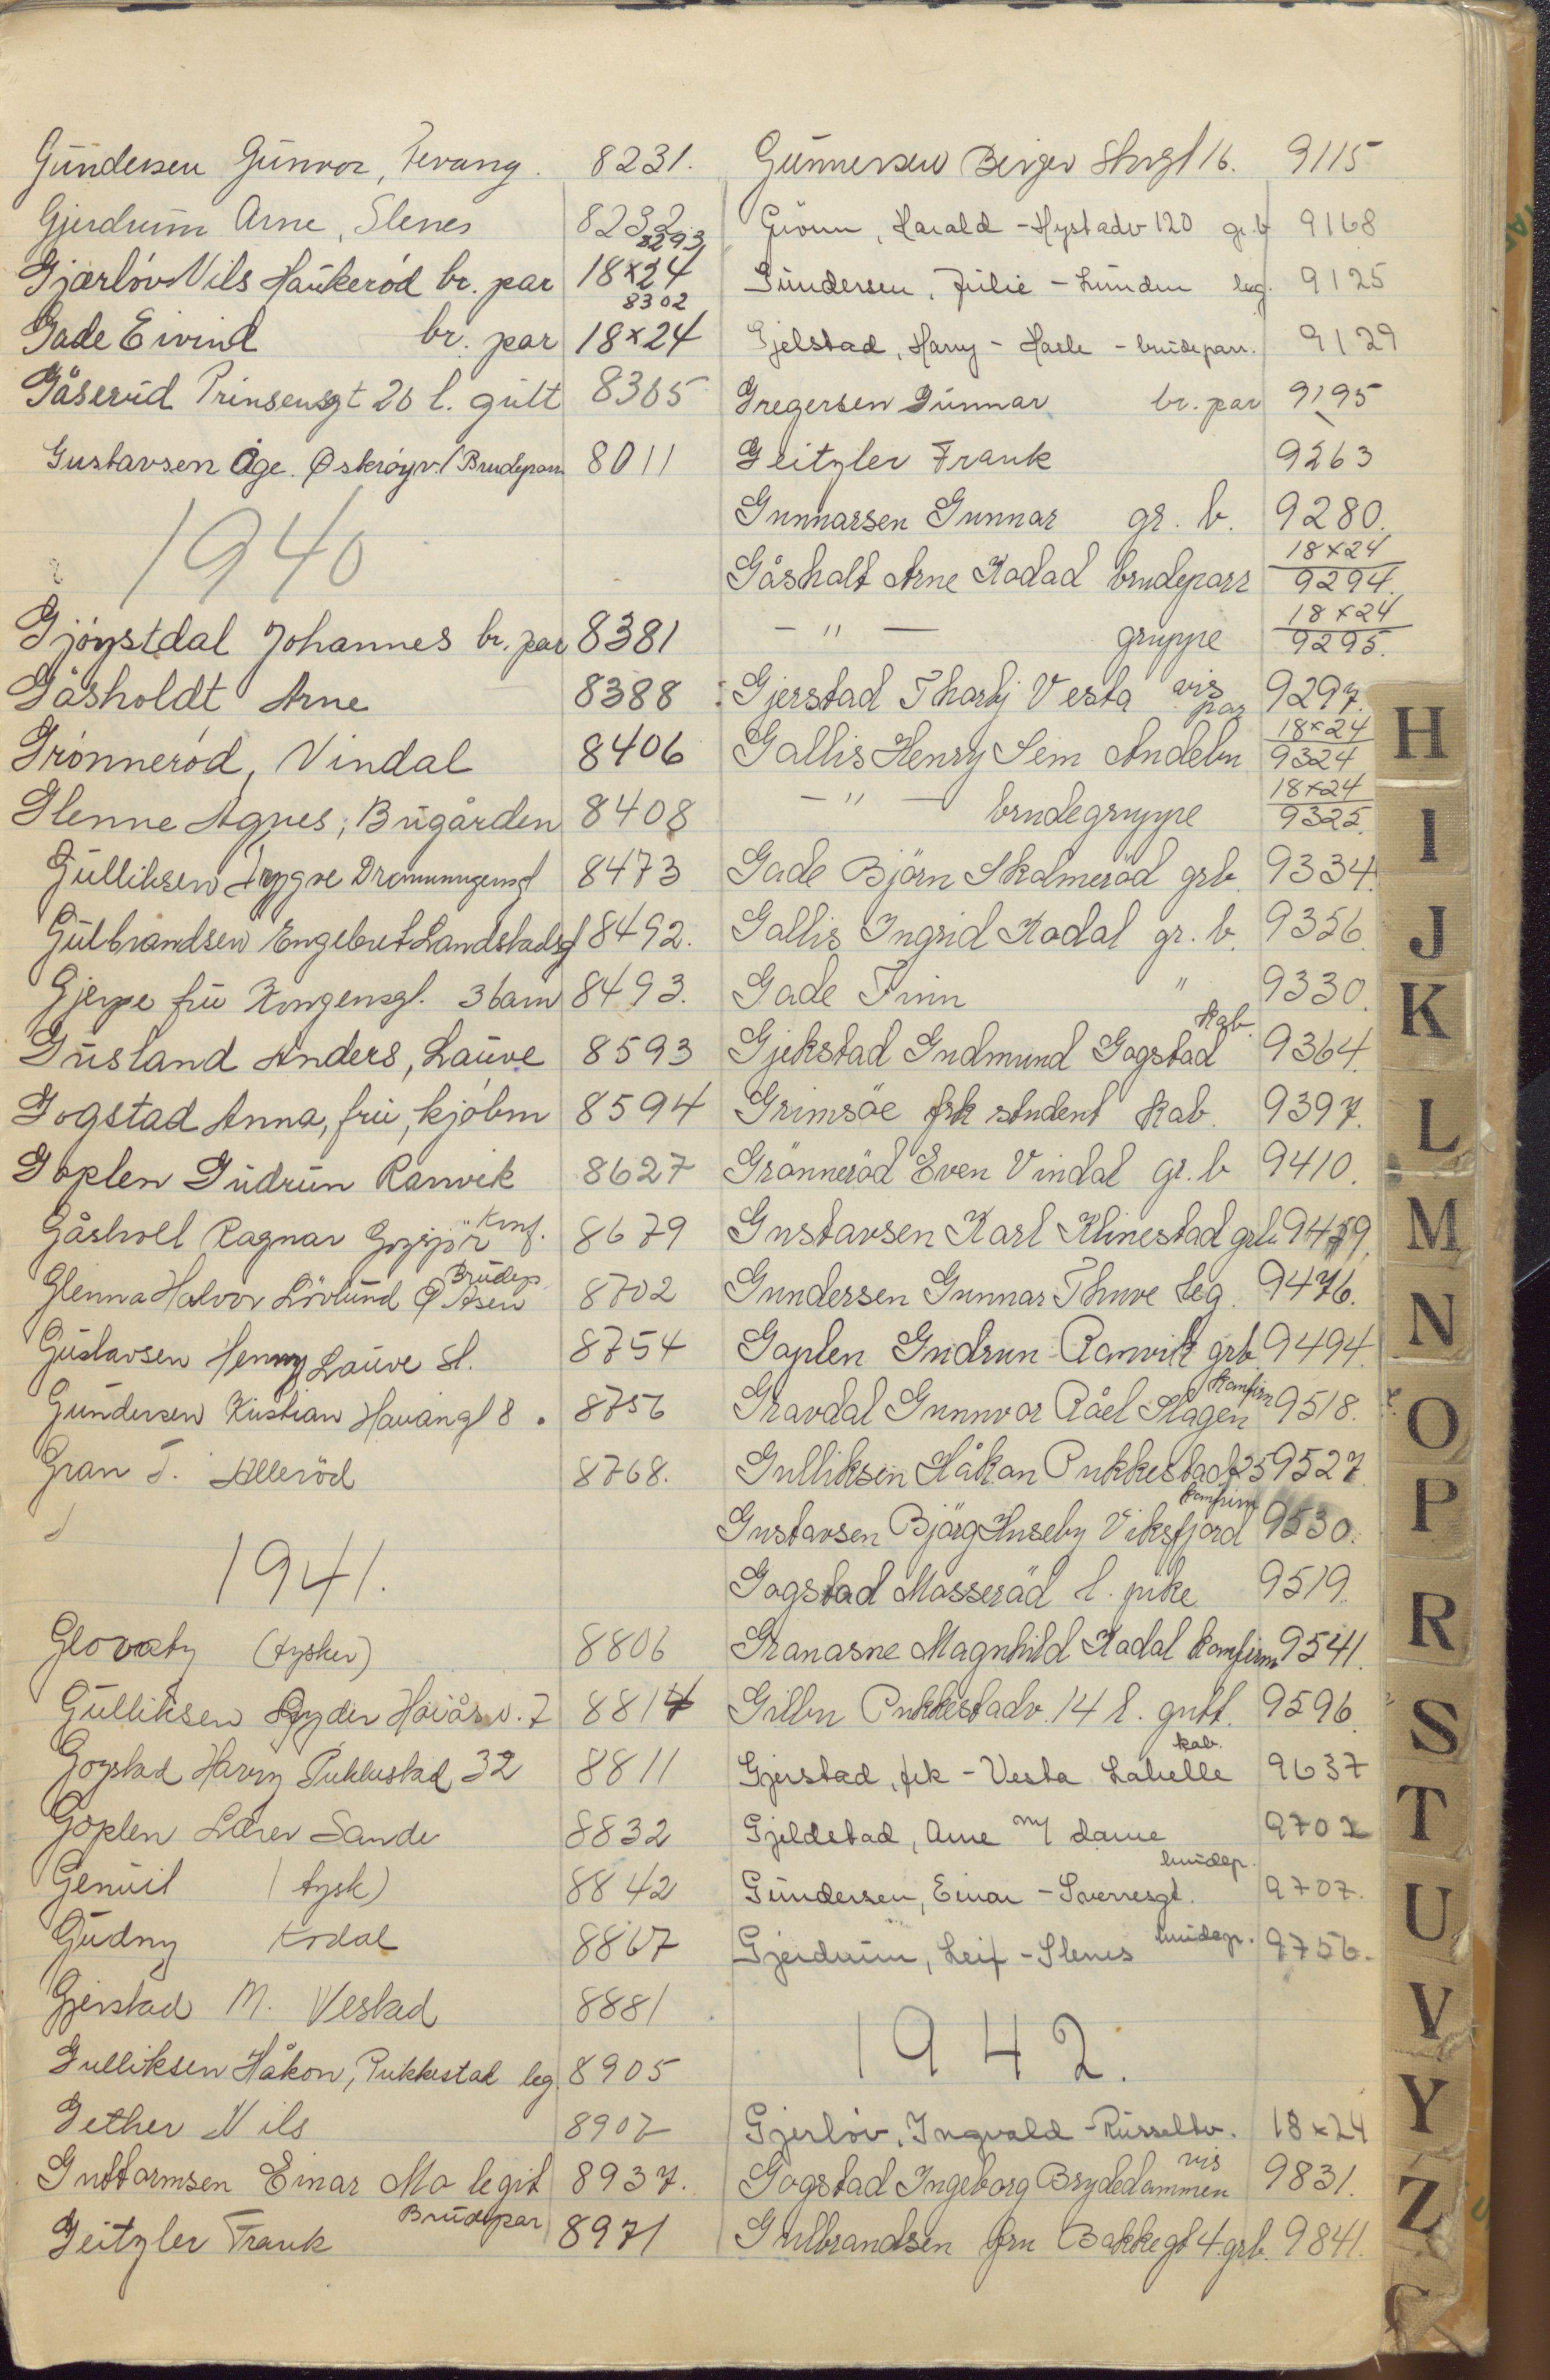 Gundersen Gunvor, Tevang. 8231.
Gjerdrum Arne, Slenes 8232
8293
Gjærløv Nils Haukerød br. par 18x24
8302
Gade Eivind br. par 18x24
Gåserud Prinsensgt 26 l. gutt 8365
Gustavsen Åge. Øskrøyv. / Brudepar 8011
1940
Gjøystdal Johannes br. par 8381
Gåsholdt Arne 8388
Grønnerød, Vindal 8406
Glenne Agnes, Bugården 8408
Gulliksen Trygve Dronningensgt 8473
Gulbrandsen Engebret Landstadsgt 8492.
Gjerpe fru Kongensgt. 3 barn 8493.
Gusland Anders, Lauve 8593
Gogstad Anna, fru, kjøbm 8594
Goplen Gudrun Ranvik 8627
Gåsholt Ragnar Gogsjø Konf. 8679
Glenna Halvor Lövlund Ø Åsen Brudep 8702
Gustavsen Henny Lauve st. 8754
Gundersen Kristian Havangt 8. 8756
Gran T. Hillerød 8768.
1941.
Glovaty (tysker) 8806
Gulliksen Snyder Haiåsv. 7 8814
Gogstad Harry Pukkestad 32 8811
Goplen Lærer Sande 8832
Genuit (tysk) 8842
Gudny Kodal 8867
Gjerstad M. Vestad 8881
Gulliksen Håkon, Pukkestad leg 8905
Gether Nils 8907
Guttormsen Einar Mo legit 8937.
Geitzler Frank Brudepar 8971
Gunnersen Birger Storgt 16. 9115
Harald - Nystadv 120 gr.b 9168
Gundersen, Julie - Lunden leg. 9125
Gjelstad, Harry - Hasle - brudeparr. 9129
Gregersen Gunnar br. par 9195
Geitzler Frank 9263
Gunnarsen Gunnar gr. b. 9280.
Gåsholt Arne Kodad brudeparr 18x24 9294.
- " - gruppe 18x24 9295.
Gjerstad Thorbj Vesta vis par 9297.
Gallis Henry Sem Andebu 18x24 9324
- " - brudegruppe 18x24 9325.
Gade Björn Skolmeröd grb. 9334.
Gallis Ingrid Kodal gr. b. 9356.
Gade Finn " 9330.
Gjekstad Gudmund Gogstad kab. 9364.
Grimsöe frk student kab. 9397.
Grönneröd Even Vindal gr. b 9410.
Gustavsen Karl Klinestad grb. 9459.
Gundersen Gunnar Thuve leg. 9476.
Goplen Gudrun Ranvik grb. 9494.
Gravdal Gunnvor Råel Slagen komfirm 9518.
Gulliksen Håkon Pukkestad 25 9527
Gustavsen Bjørg Huseby Viksfjord komfirm 9530.
Gogstad Mosseröd l. pike 9519.
Granasne Magnhild Kodal komfirm 9541.
Gillbu Pukkestadv. 14 l. gutt. 9596.
Gjerstad, frk - Vesta Labelle kab. 9637
Gjeldstad, Arne m/ dame 9702
Gundersen, Einar - Sverresgt. brudep. 9707.
Gjerdrum, Leif - Slenes brudep. 9756.
1942.
Gjerløv, Ingvald - Russeltv. 18x24
Gogstad Ingeborg Brydedammen vis 9831.
Gulbrandsen fru Bakkegt 4 grb. 9841.
H
I
J
K
L
M
N
O
P
R
S
T
U
V
Y
Z